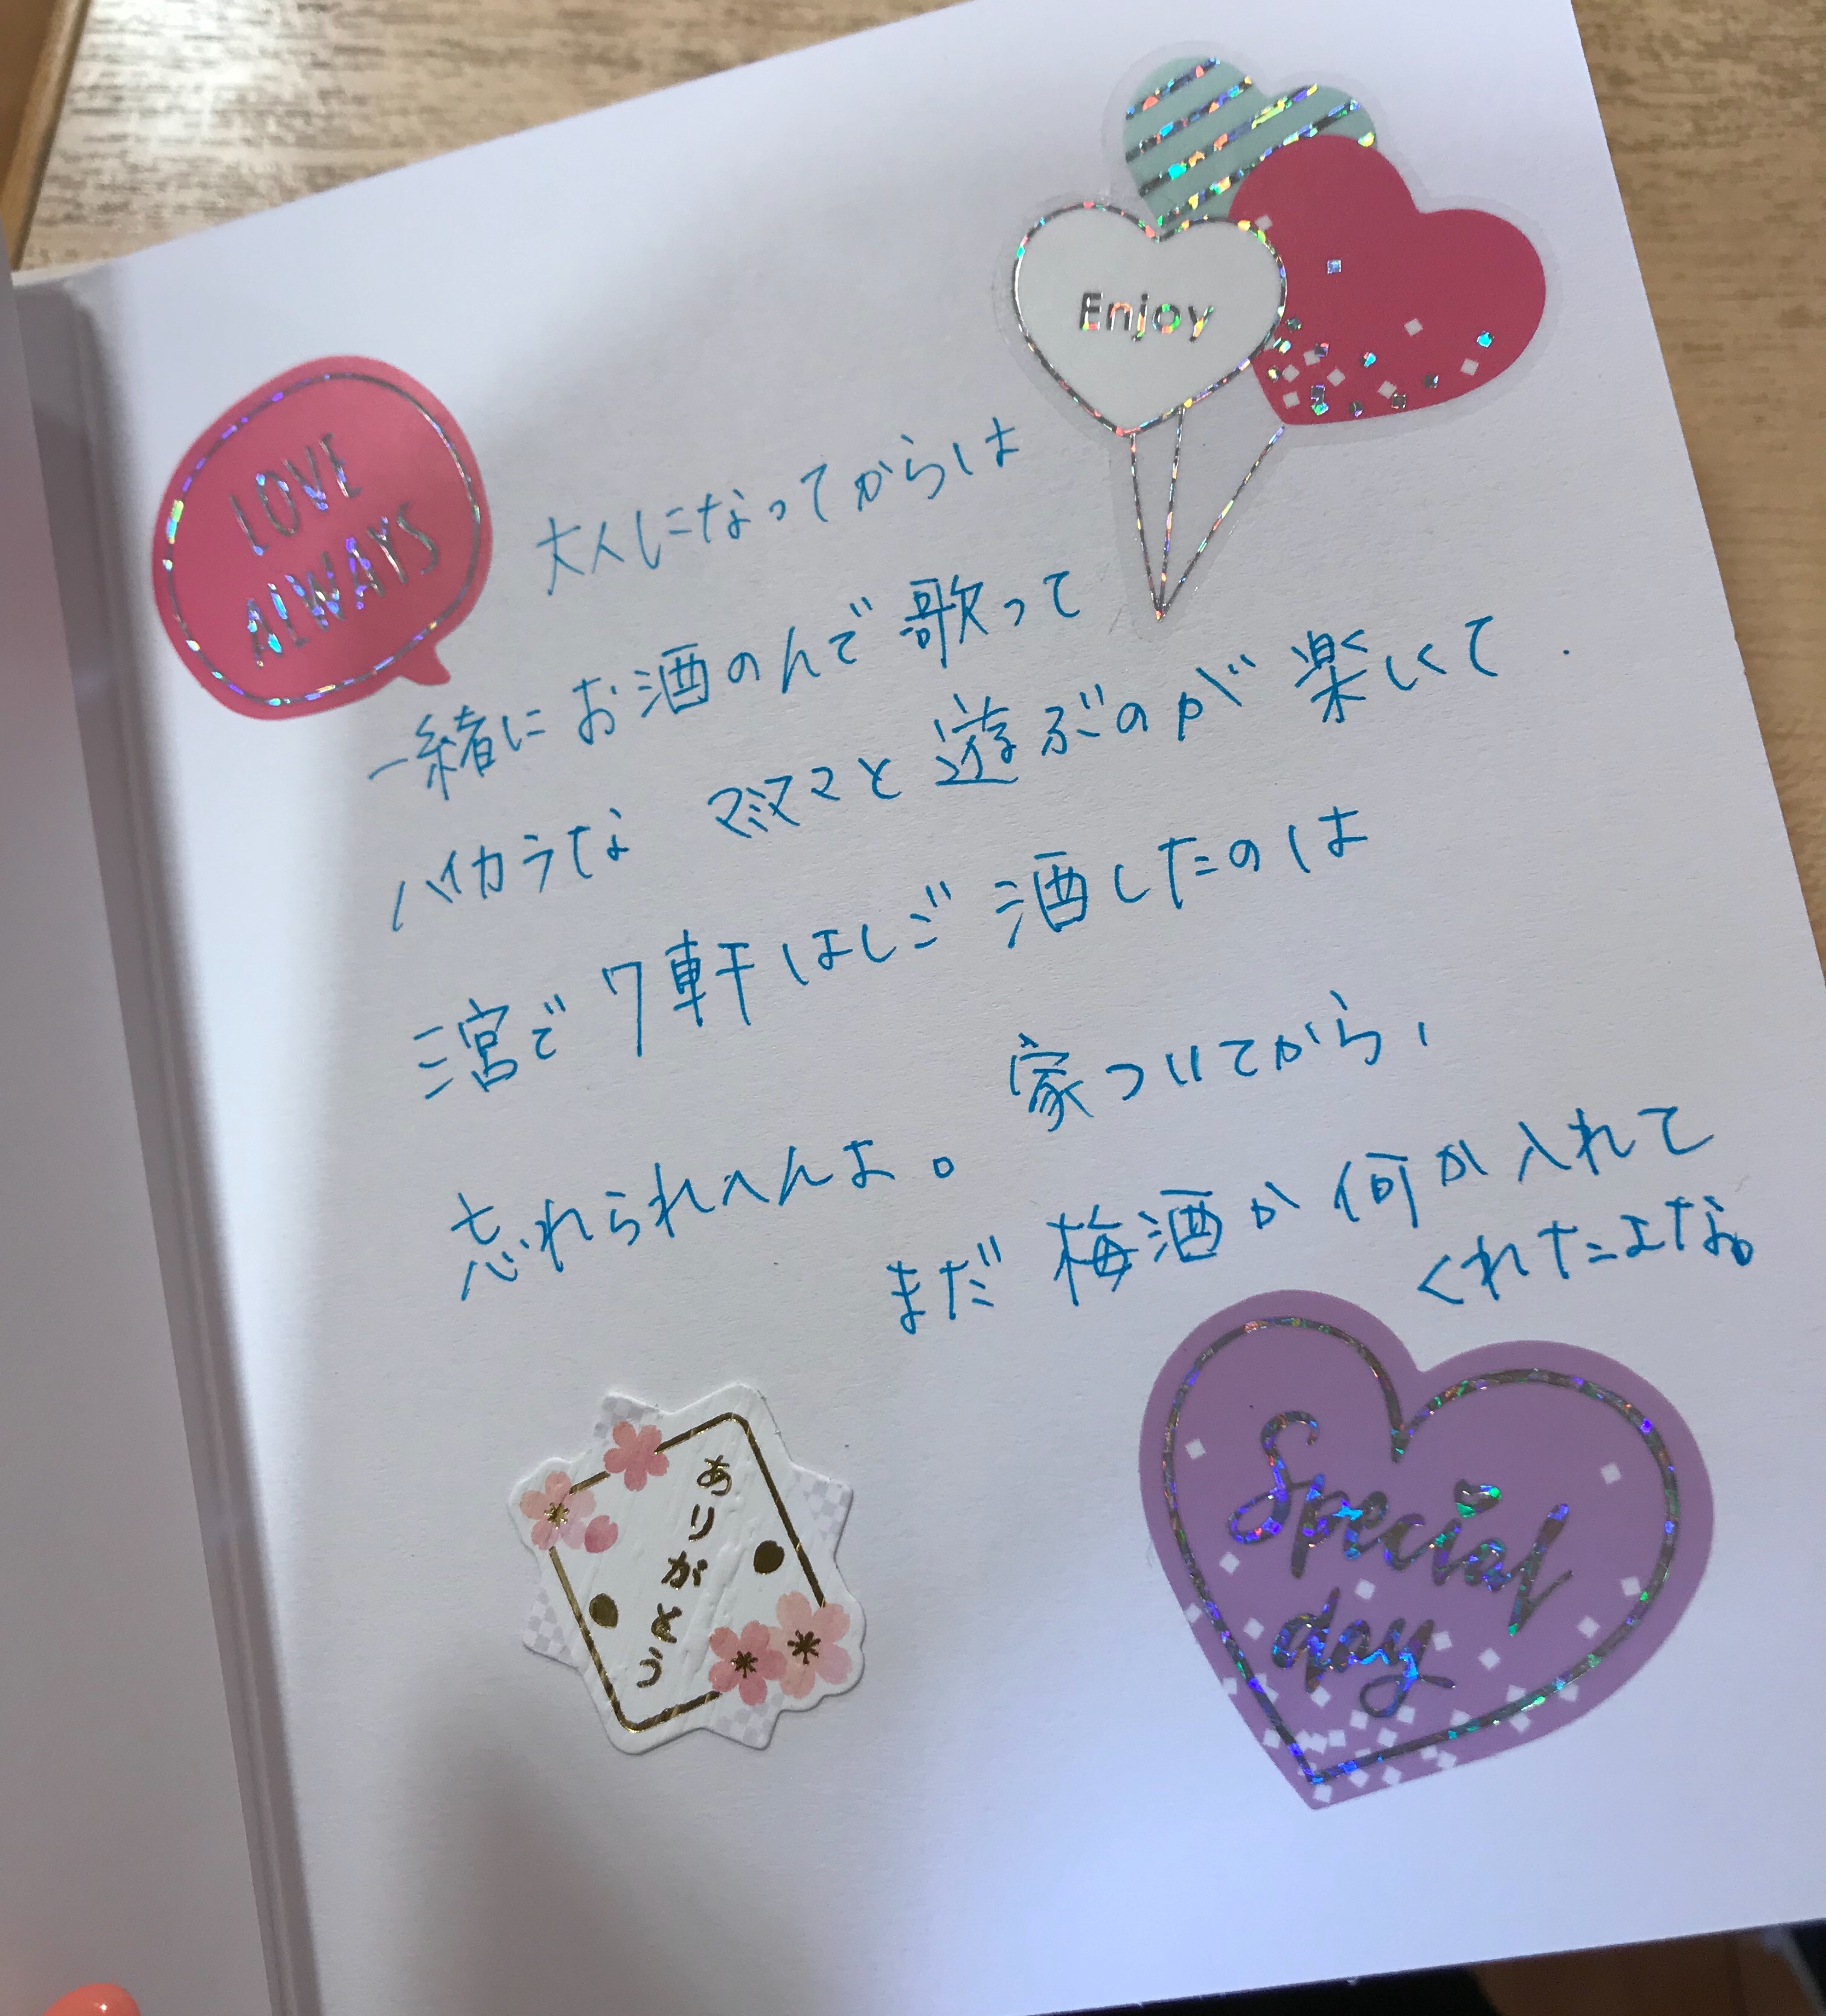 Enjoy
LOVE
ALWAYS
大人になってからは
一緒にお酒のんで歌って
ハイカラなマミママと遊ぶのが楽しくて
三宮で7軒はしご酒したのは
忘れられへんよ。
家ついてから、
まだ梅酒か何か入れて
くれたよな。
ありがとう
Special
day